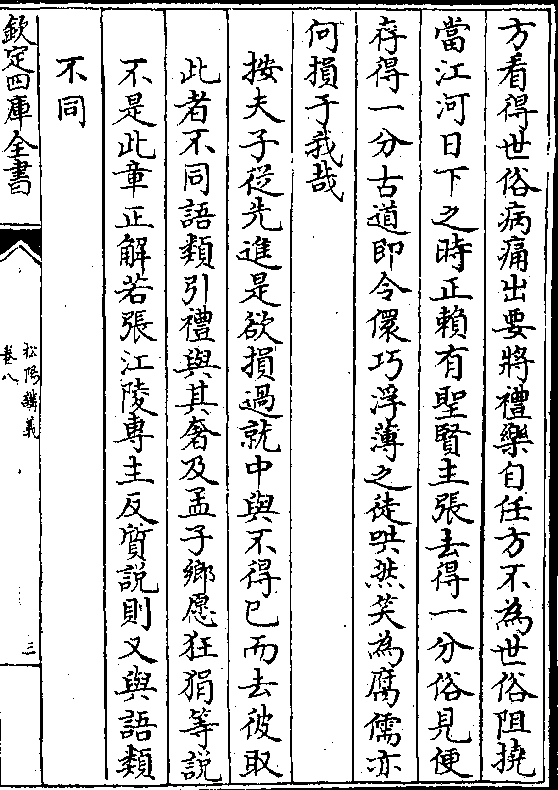 方看得世俗病痛出要將禮樂自任方不為世俗阻撓
當江河日下之時正賴有聖賢主張去得一分俗見便
存得一分古道即令儇巧浮薄之徒哄然笑為腐儒亦
何損于我哉
按夫子從先進是欲損過就中與不得已而去彼取
此者不同語類引禮與其奢及孟子鄉愿狂狷等說
不是此章正解若張江陵專主反質說則又與語類
不同
欽定四庫全書
松陽講義
卷八
三